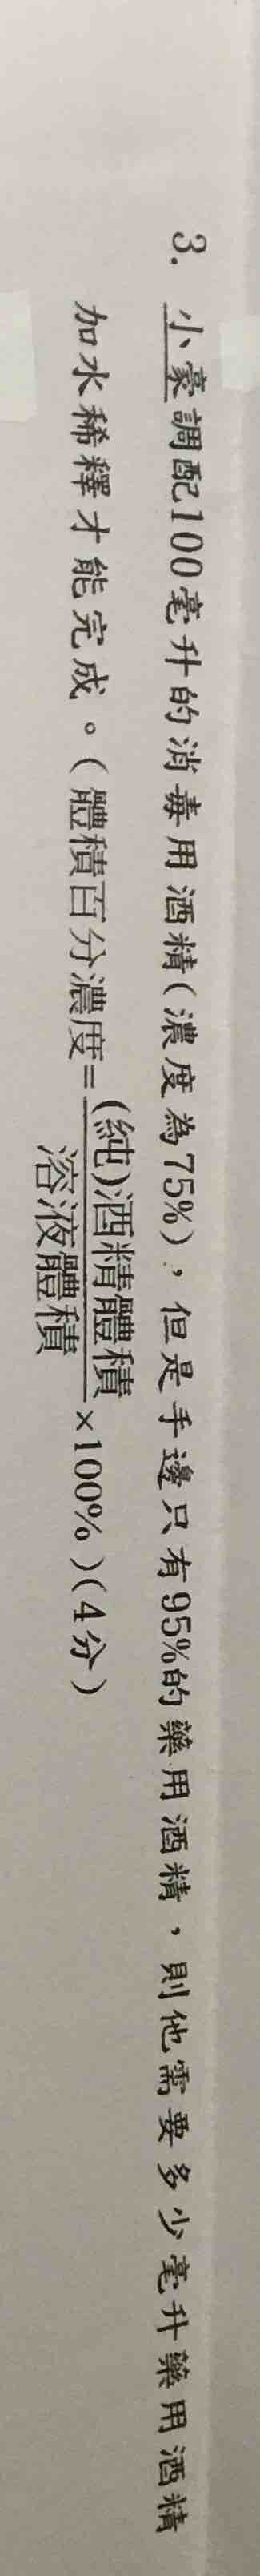 3. 小豪調配100毫升的消毒用酒精(濃度為75%)，但是手邊只有95%的藥用酒精，則他需要多少毫升藥用酒精
加水稀釋才能完成。(體積百分濃度=(純)酒精體積/溶液體積×100%)(4分)